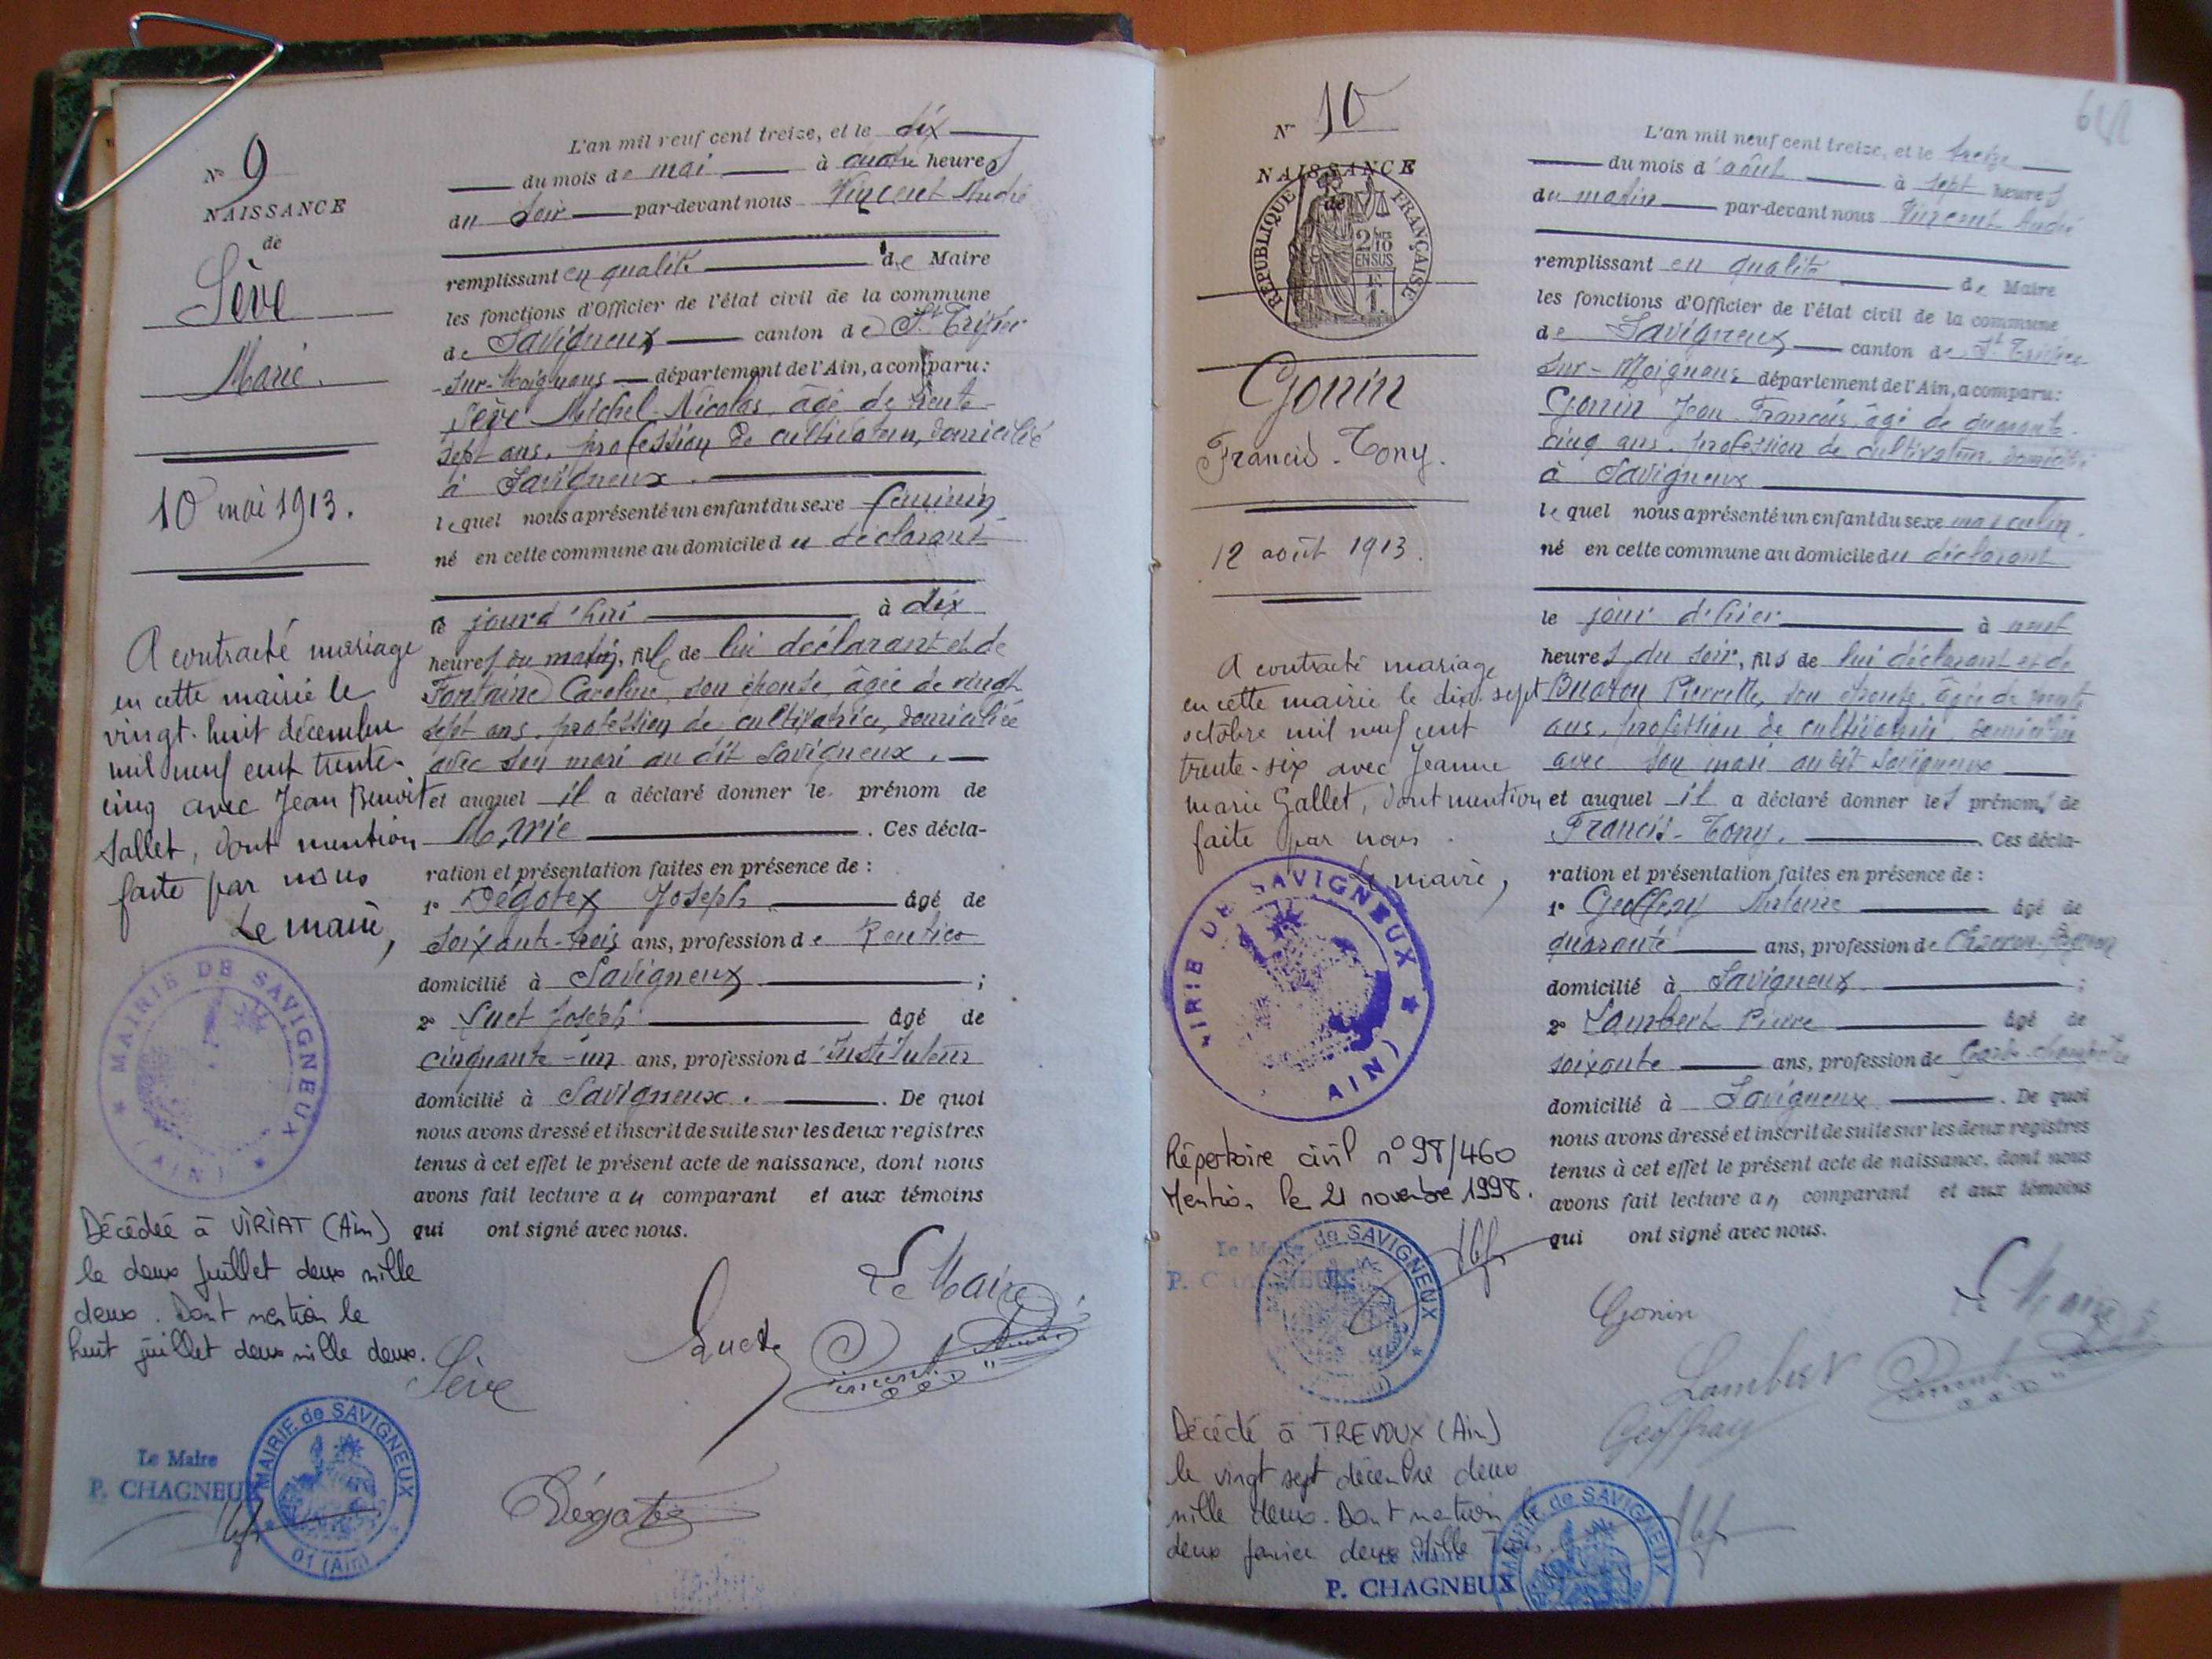 N° 9
NAISSANCE
de
Sève
Marie.
10 mai 1913.
A contracté mariage
en cette mairie le
vingt-huit décembre
mil neuf cent trente-
cinq avec Jean Benoit
Sallet, dont mention
faite par nous
Le maire,
MAIRIE DE SAVIGNEUX
(AIN)
Décédée à VIRIAT (Ain)
le deux juillet deux mille
deux. Dont mention le
huit juillet deux mille deux.
Le Maire
P. CHAGNEUX
MAIRIE de SAVIGNEUX
01 (Ain)
L'an mil neuf cent treize, et le dix
du mois de mai à quatre heures
du soir par-devant nous Vincent André
remplissant en qualité de Maire
les fonctions d'Officier de l'état civil de la commune
de Savigneux canton de St Trivier
-sur-Moignans département de l'Ain, a comparu:
Sève Michel-Nicolas, âgé de trente-
sept ans, profession de cultivateur, domicilié
à Savigneux.
lequel nous a présenté un enfant du sexe féminin
né en cette commune au domicile du déclarant
le jourd'hui à dix
heures du matin, fille de lui déclarant et de
Fontaine Caroline, son épouse, âgée de vingt
sept ans, profession de cultivatrice, domiciliée
avec son mari au dit Savigneux.
et auquel il a déclaré donner le prénom de
Marie. Ces décla-
ration et présentation faites en présence de :
1° Dégotex Joseph âgé de
soixante-trois ans, profession de Rentier
domicilié à Savigneux ;
2° Luet Joseph âgé de
cinquante-un ans, profession d'Instituteur
domicilié à Savigneux. De quoi
nous avons dressé et inscrit de suite sur les deux registres
tenus à cet effet le présent acte de naissance, dont nous
avons fait lecture au comparant et aux témoins
qui ont signé avec nous.
Le Maire
Luet
Vincent André
Sève
N° 10
NAISSANCE
de
RÉPUBLIQUE FRANÇAISE
2/10
EN SUS
Gonin
Francis-Tony.
12 août 1913.
A contracté mariage
en cette mairie le dix-sept
octobre mil neuf cent
trente-six avec Jeanne
Marie Gallet, dont mention
faite par nous.
Le maire,
MAIRIE DE SAVIGNEUX
(AIN)
Répertoire civil n° 98/460
Mention le 21 novembre 1998.
Le Maire
P. CHAGNEUX
MAIRIE de SAVIGNEUX
Décédé à TREVOUX (Ain)
le vingt sept décembre deux
mille deux. Dont mention le
deux janvier deux mille
Le Maire
P. CHAGNEUX
MAIRIE de SAVIGNEUX
L'an mil neuf cent treize, et le treize
du mois d'août à sept heures
du matin par-devant nous Vincent André
remplissant en qualité de Maire
les fonctions d'Officier de l'état civil de la commune
de Savigneux canton de St Trivier
sur-Moignans département de l'Ain, a comparu:
Gonin Jean-François, âgé de quarante-
cinq ans, profession de cultivateur, domicilié
à Savigneux
lequel nous a présenté un enfant du sexe masculin.
né en cette commune au domicile du déclarant
le jour d'hier à neuf
heures du soir, fils de lui déclarant et de
Pierrette, son épouse, âgée de
ans, profession de cultivatrice, domiciliée
avec son mari au dit Savigneux
et auquel il a déclaré donner les prénoms de
Francis-Tony. Ces décla-
ration et présentation faites en présence de :
1° Geoffray Antoine âgé de
quarante ans, profession de
domicilié à Savigneux ;
2° Lambert Pierre âgé de
soixante ans, profession de Garde-champêtre
domicilié à Savigneux. De quoi
nous avons dressé et inscrit de suite sur les deux registres
tenus à cet effet le présent acte de naissance, dont nous
avons fait lecture au comparant et aux témoins
qui ont signé avec nous.
Gonin
Le Maire
Lambert
Vincent André
Geoffray